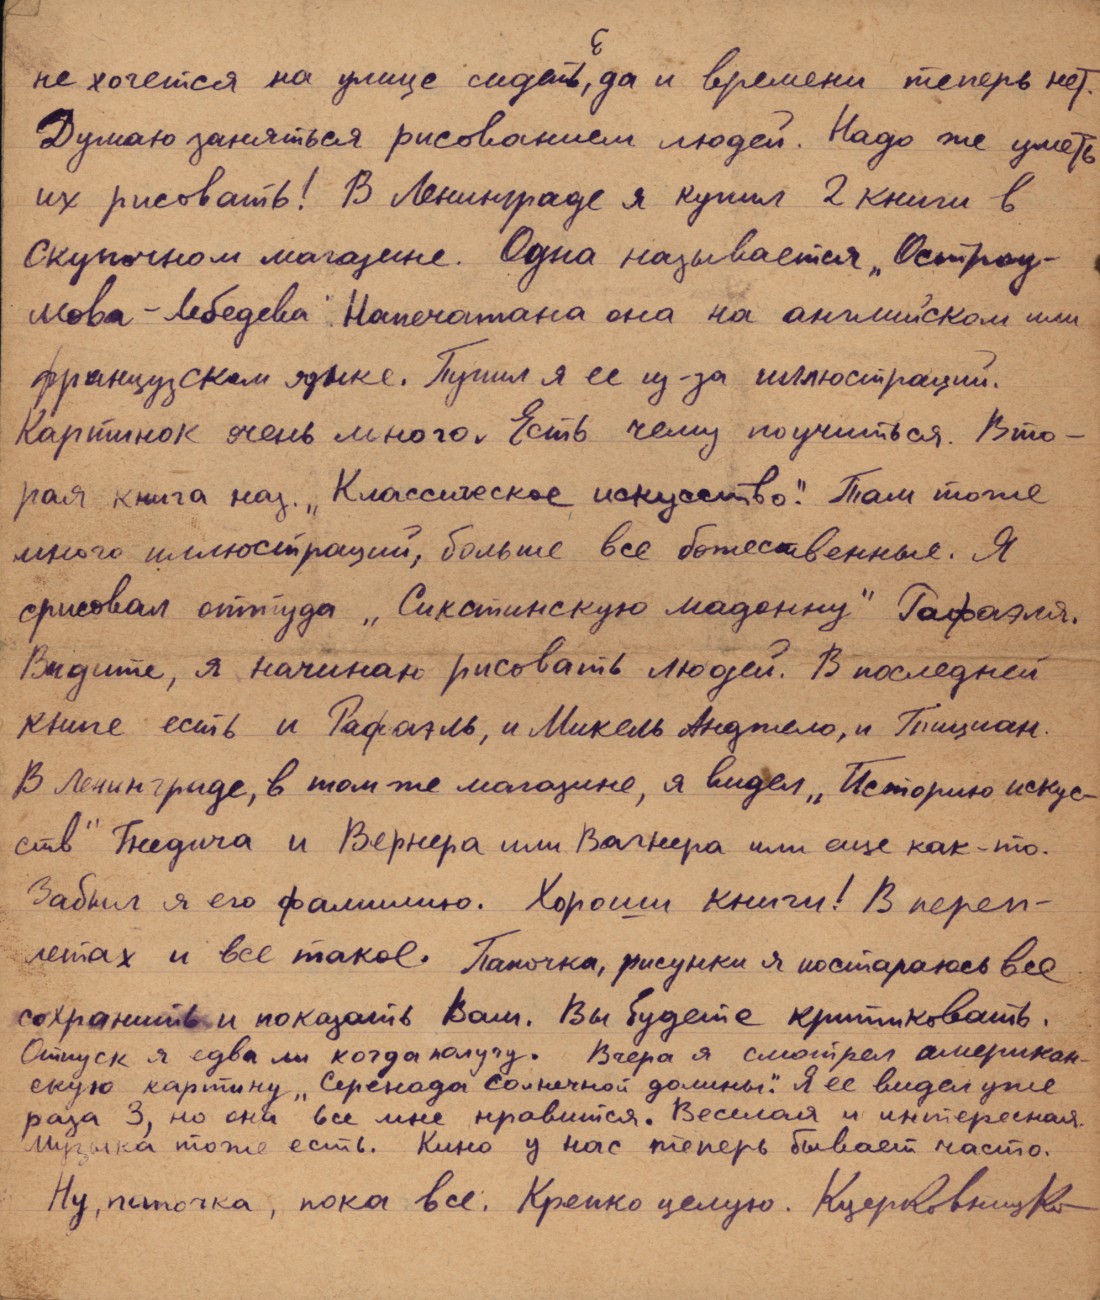 не хочется на улице сидеть, да и времени теперь нет.
Думаю заняться рисованием людей. Надо же уметь
их рисовать! В Ленинграде я купил 2 книги в
скупочном магазине. Одна называется „Остроу-
мова-Лебедева". Напечатана она на английском или
французском языке. Купил я ее из-за иллюстраций.
Картинок очень много. Есть чему поучиться. Вто-
рая книга наз. „Классическое искусство". Там тоже
много иллюстраций, больше все божественные. Я
срисовал оттуда „Сикстинскую мадонну" Рафаэля.
Видите, я начинаю рисовать людей. В последней
книге есть и Рафаэль, и Микель Анджело, и Тициан.
В Ленинграде, в том же магазине, я видел „Историю искус-
ств" Гнедича и Вернера или Вагнера или еще как-то.
Забыл я его фамилию. Хороши книги! В переп-
летах и все такое. Папочка, рисунки я постараюсь все
сохранить и показать Вам. Вы будете критиковать.
Отпуск я едва ли когда получу. Вчера я смотрел американ-
скую картину „Серенада солнечной долины". Я ее видел уже
раза 3, но она все мне нравится. Веселая и интересная.
Музыка тоже есть. Кино у нас теперь бывает часто.
Ну, папочка, пока все. Крепко целую.